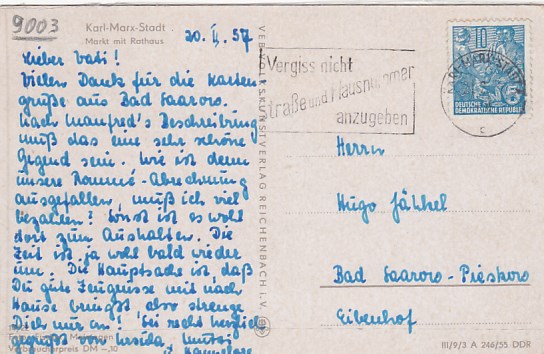 9003
Karl-Marx-Stadt
Markt mit Rathaus
20. II. 57
Lieber Vati!
Vielen Dank für die Karten
grüße aus Bad Saarow.
Nach Manfred's Beschreibung
muß das eine sehr schöne
Gegend sein. Wie ist denn
unsere Rommé-Abrechnung
ausgefallen, muß ich viel
bezahlen? Sonst ist es wohl
dort zum Aushalten. Die
Zeit ist ja wohl bald wieder
um. Die Hauptsache ist, daß
Du gute Zeugnisse mit nach
Hause bringst also strenge
Dich mir an! Sei recht herzlich
gegrüßt von Ursula, Mutti
Verbraucherpreis DM –,10
VEB VOLKSKUNSTVERLAG REICHENBACH i. V.
Vergiss nicht
Straße und Hausnummer
anzugeben
10
DEUTSCHE
DEMOKRATISCHE REPUBLIK
c
Herrn
Hugo
Bad Saarow-Pieskow
Eibenhof
III/9/3 A 246/55 DDR